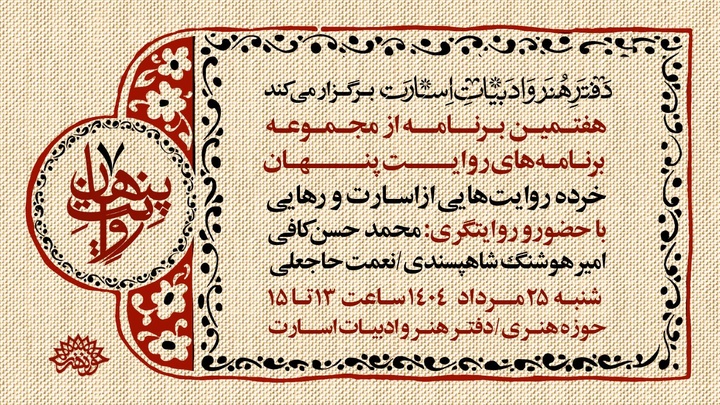 دفتر هنر و ادبیات اسارت برگزار می‌کند
هفتمین برنامه از مجموعه
برنامه‌های روایت پنهان
خرده روایت‌هایی از اسارت و رهایی
با حضور و روایتگری: محمد حسن کافی
امیر هوشنگ شاهپسندی / نعمت حاجعلی
شنبه ۲۵ مرداد ۱۴۰۴ ساعت ۱۳ تا ۱۵
حوزه هنری / دفتر هنر و ادبیات اسارت
روایت پنهان ۷